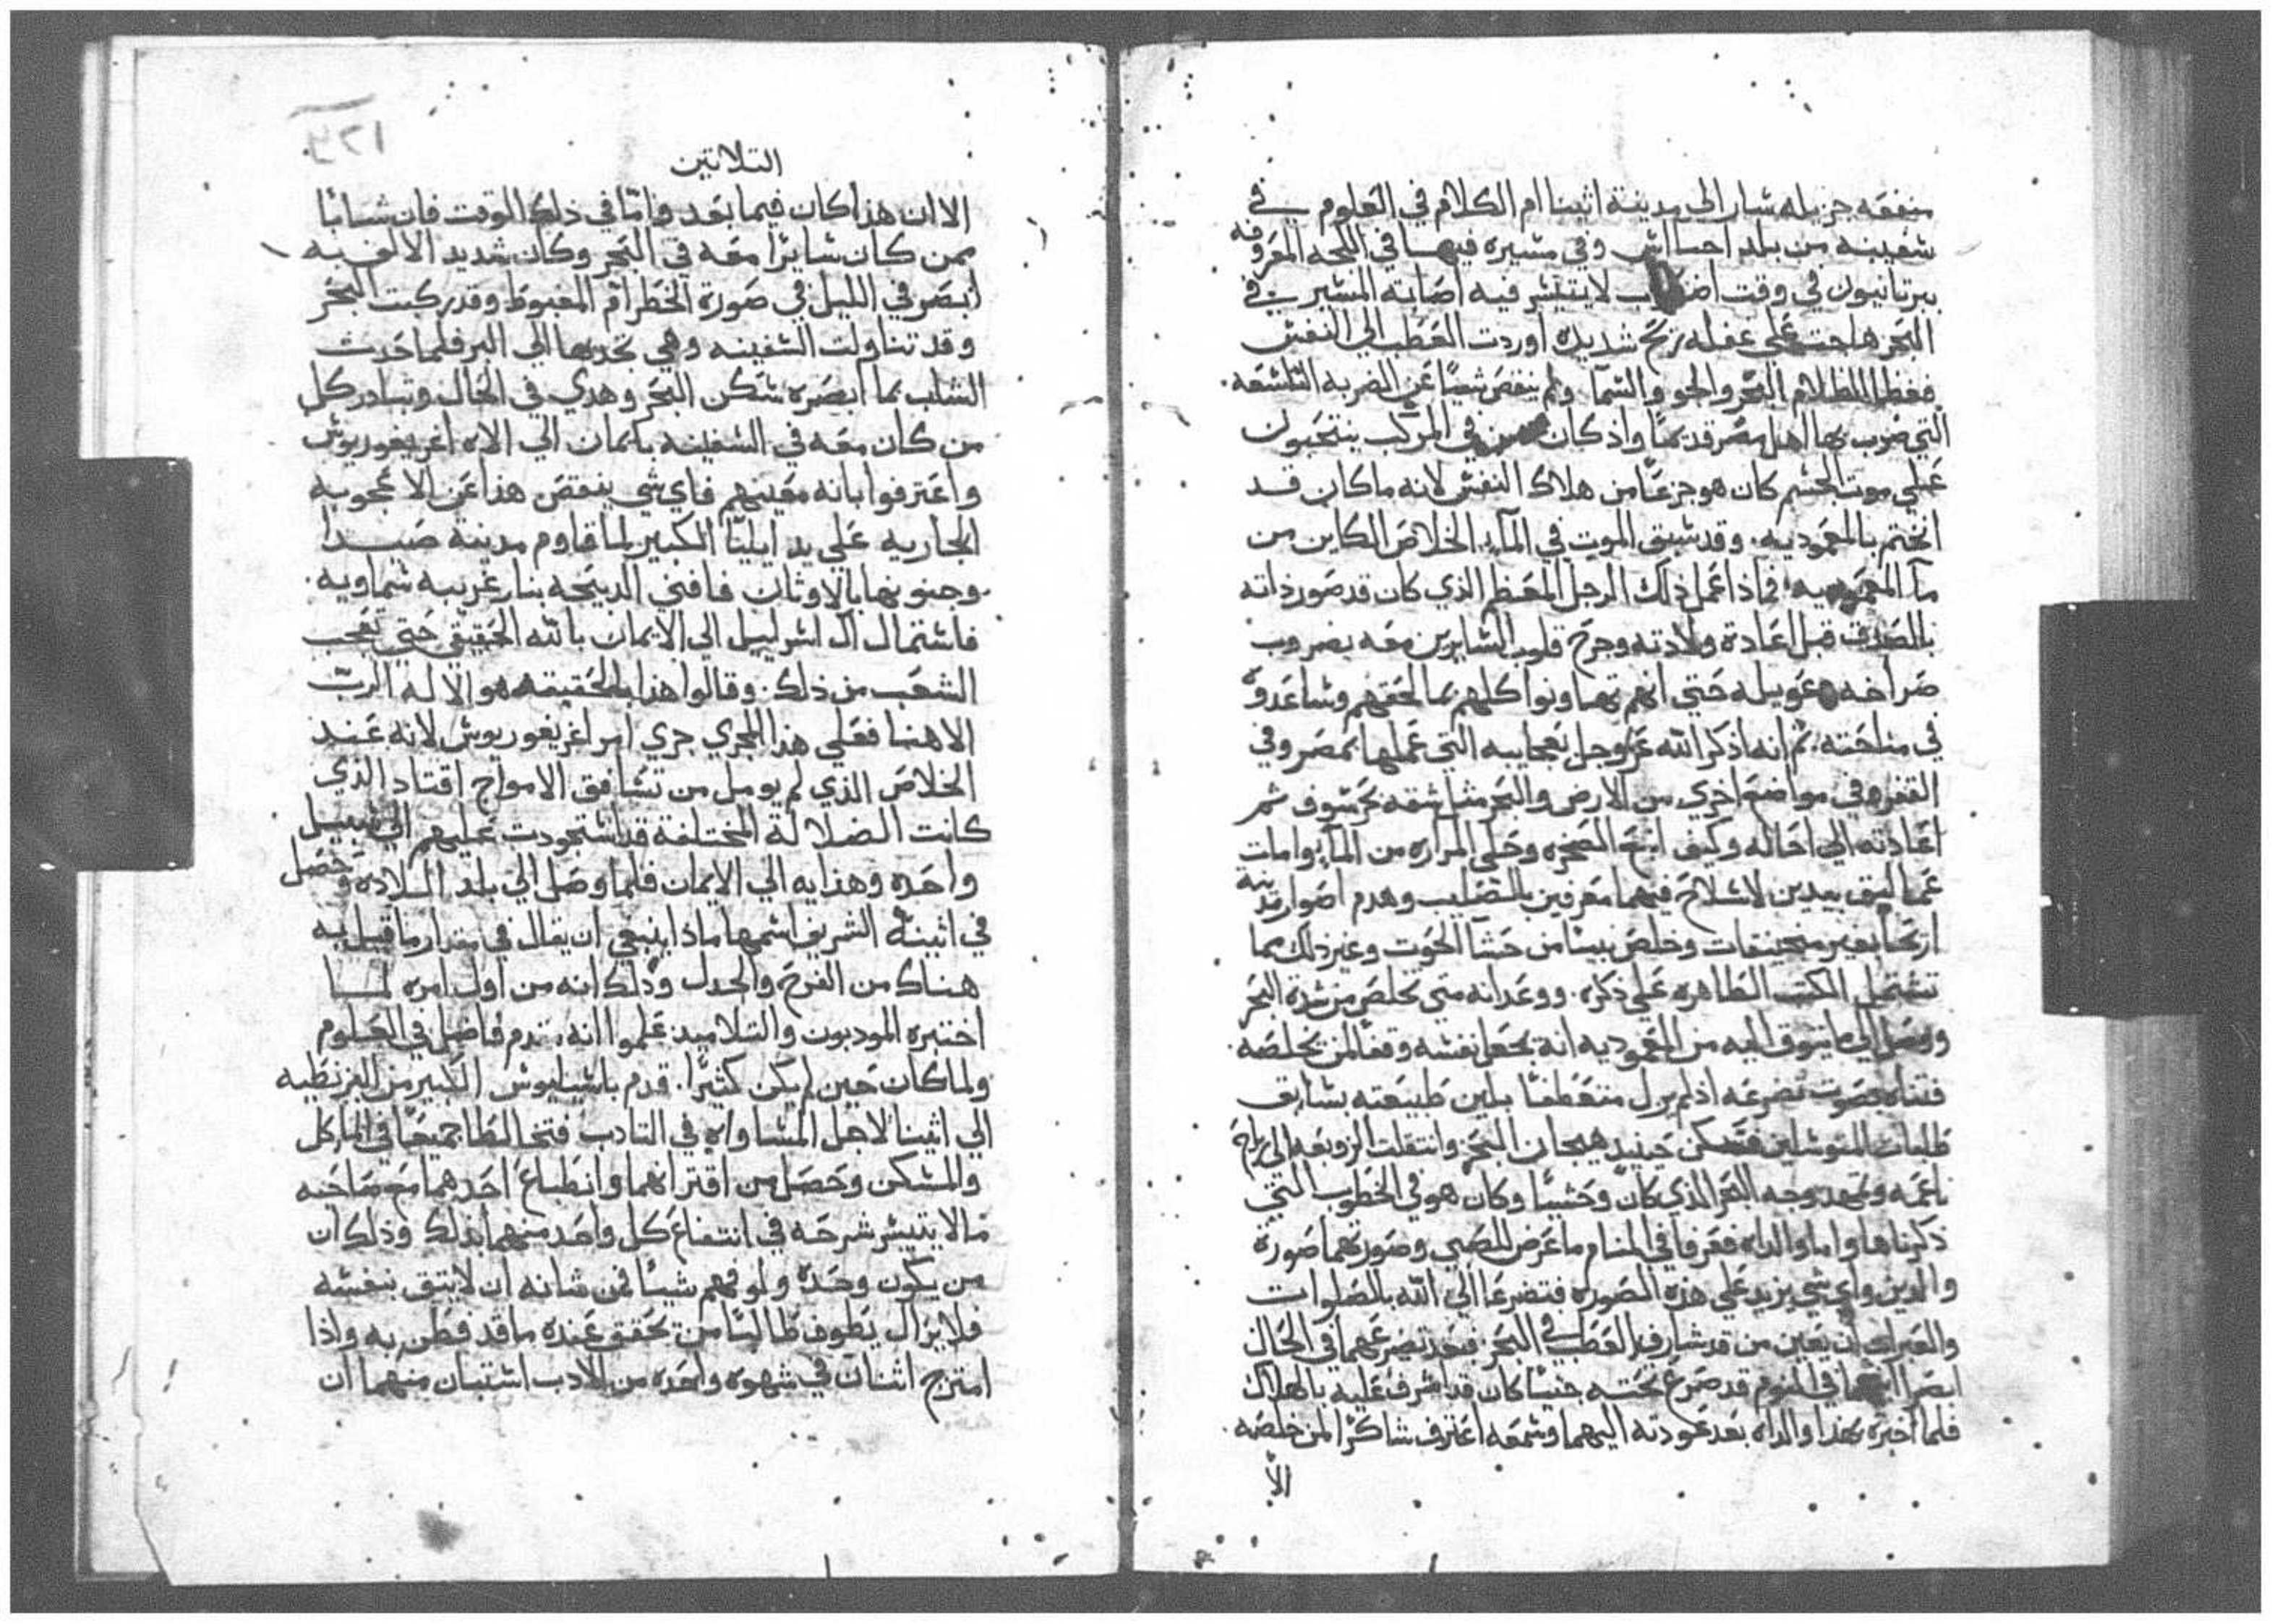 منفعه جزيله سار الي مدينة اثينا ام الكلام في العلوم في
سفينه من بلد احساانس وفي مسيره فيها في اللجه المعروفه
ببرتانيون في وقت لا يتيسر فيه اصابة المسير في
البحر هاجت علي غفله ريح شديده اوردت العطب الي النفس
فغطا الظلام البحر والجو والسما ولم ينقص شيا عن الضربه التاسعه.
التي ضرب بها اهل مصر قديما واذ كان في المركب ينتحبون
علي موت الجسم كان هو جزعا من هلاك النفس لانه ما كان قد
انختم بالمعموديه. وقد سبق الموت في المآء. الخلاص الكاين من
مآ المعموديه فماذا عمل ذلك الرجل المعظم الذي كان قد صور ذاته
بالصدف قبل اعادة ولادته وجرح قلوب السايرين معه بضروب
صراخه وعويله حتي انهم تهاونوا كلهم بما لحقهم وساعدوه
في مناحته. ثم انه اذكر الله عز وجل بعجايبه التي عملها بمصر وفي
القفر وفي مواضع اخري من الارض والبحر مثل شقه بحر سوف ثم
اعادته الي احاله وكيف انبع الصخره وحلي المراره من المآ وامات
عماليق بيدين لا سلاح فيهما معرفين بالصليب وهدم اصوار مدينة
اريحا بغير منجنيقات وخلص نبيا من حشا الحوت وغير ذلك مما
تشتمل الكتب الطاهره علي ذكره. ووعد انه متي تخلص من شدة البحر
ووصل الي ما يتوق اليه من المعموديه انه يجعل نفسه وقفا لمن يخلصه.
فتناه بصوت تضرعه اذ لم يزل متعطفا بلين طبيعته بسابق
طلبات المتوسلين فسكن حينيد هيجان البحر وانتقلت الزوبعه الي رياح
ناعمه وتمهد وجه البحر الذي كان وحشيا وكان هو في الخطوب التي
ذكرناها واما والداه فعرفا في المنام ما عرض للصبي وصورتهما صورة
والدين واي شي يزيد علي هذه الصوره فتضرعا الي الله بالصلوات
والعبرات ان يعين من قد شارف العطب في البحر فبعد تصرعهما في الحال
ابصرا في النوم قد صرع تحته جنيا كان قد اشرف عليه بالهلاك
فلما اخبره بهذا والداه بعد عودته اليهما وسمعه اعترف شاكرا لمن خلصه.
الا
التلاتين
الا ان هذا كان فيما بعد واما في ذلك الوقت فان شابا
ممن كان سايرا معه في البحر وكان شديد الالف به
ابصر في الليل في صورة الخطر ام المغبوط وقد ركبت البحر
وقد تناولت السفينه وهي تجذبها الي البر فلما حدث
الشاب بما ابصره سكن البحر وهدي في الحال وتبادر كل
من كان معه في السفينه بايمان الي الاه اغريغوريوس
واعترفوا بانه معينهم فاي شي ينقص هذا عن الاعجوبه
الجاريه علي يد ايليا الكبير لما قاوم مدينة صيدا
وجنونها بالاوثان فافني الدبيحه بنار غريبه سماويه.
فاستمال ال اسراييل الي الايمان بالله الحقيقي حتي تعجب
الشعب من ذلك. وقالوا هذا بالحقيقه هو الاله الرب
الاهنا فعلي هذا المجري جري امر اغريغوريوس لانه عند
الخلاص الذي لم يومل من تسافق الامواج اقتاد الذي
كانت الضلالة المختلفة قد استحوذت عليهم الي سبيل
واحده وهدايه الي الايمان فلما وصل الي بلد السلاده وحصل
في اثينة الشريف اسمها ماذا ينبغي ان يقال في مقدار ما قبل به
هناك من الفرح والجدل وذلك انه من اول امره لما
اختبره المودبون والتلاميد علموا انه يتقدم فاضل في العلوم
ولما كان حين لم يكن كثيرا. قدم باسيليوس الكبير من البزنطيه
الي اثينا لاجل المساواه في التادب فتخالطا جميعا في الماكل
والمسكن وحصل من اقترانهما وانطباع احدهما مع صاحبه
ما لا يتيسر شرحه في انتفاع كل واحد منهما بذلك وذلك ان
من يكون وحده ولو فهم شيا فمن شانه ان لا يتق بنفسه
فلا يزال يطوف طالبا من تحقق عنده ما قد فطن به واذا
امتزج اثنان في شهوه واحده من الادب استبان منهما ان